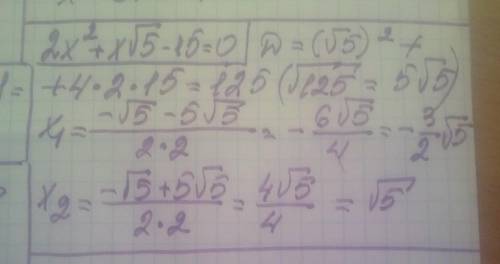 2x² + x√5 - 15 = 0 D = (√5)² +
+ 4 · 2 · 15 = 125 (√125 = 5√5)
x₁ = (-√5 - 5√5)/(2·2) = - 6√5/4 = - 3/2 √5
x₂ = (-√5 + 5√5)/(2·2) = 4√5/4 = √5